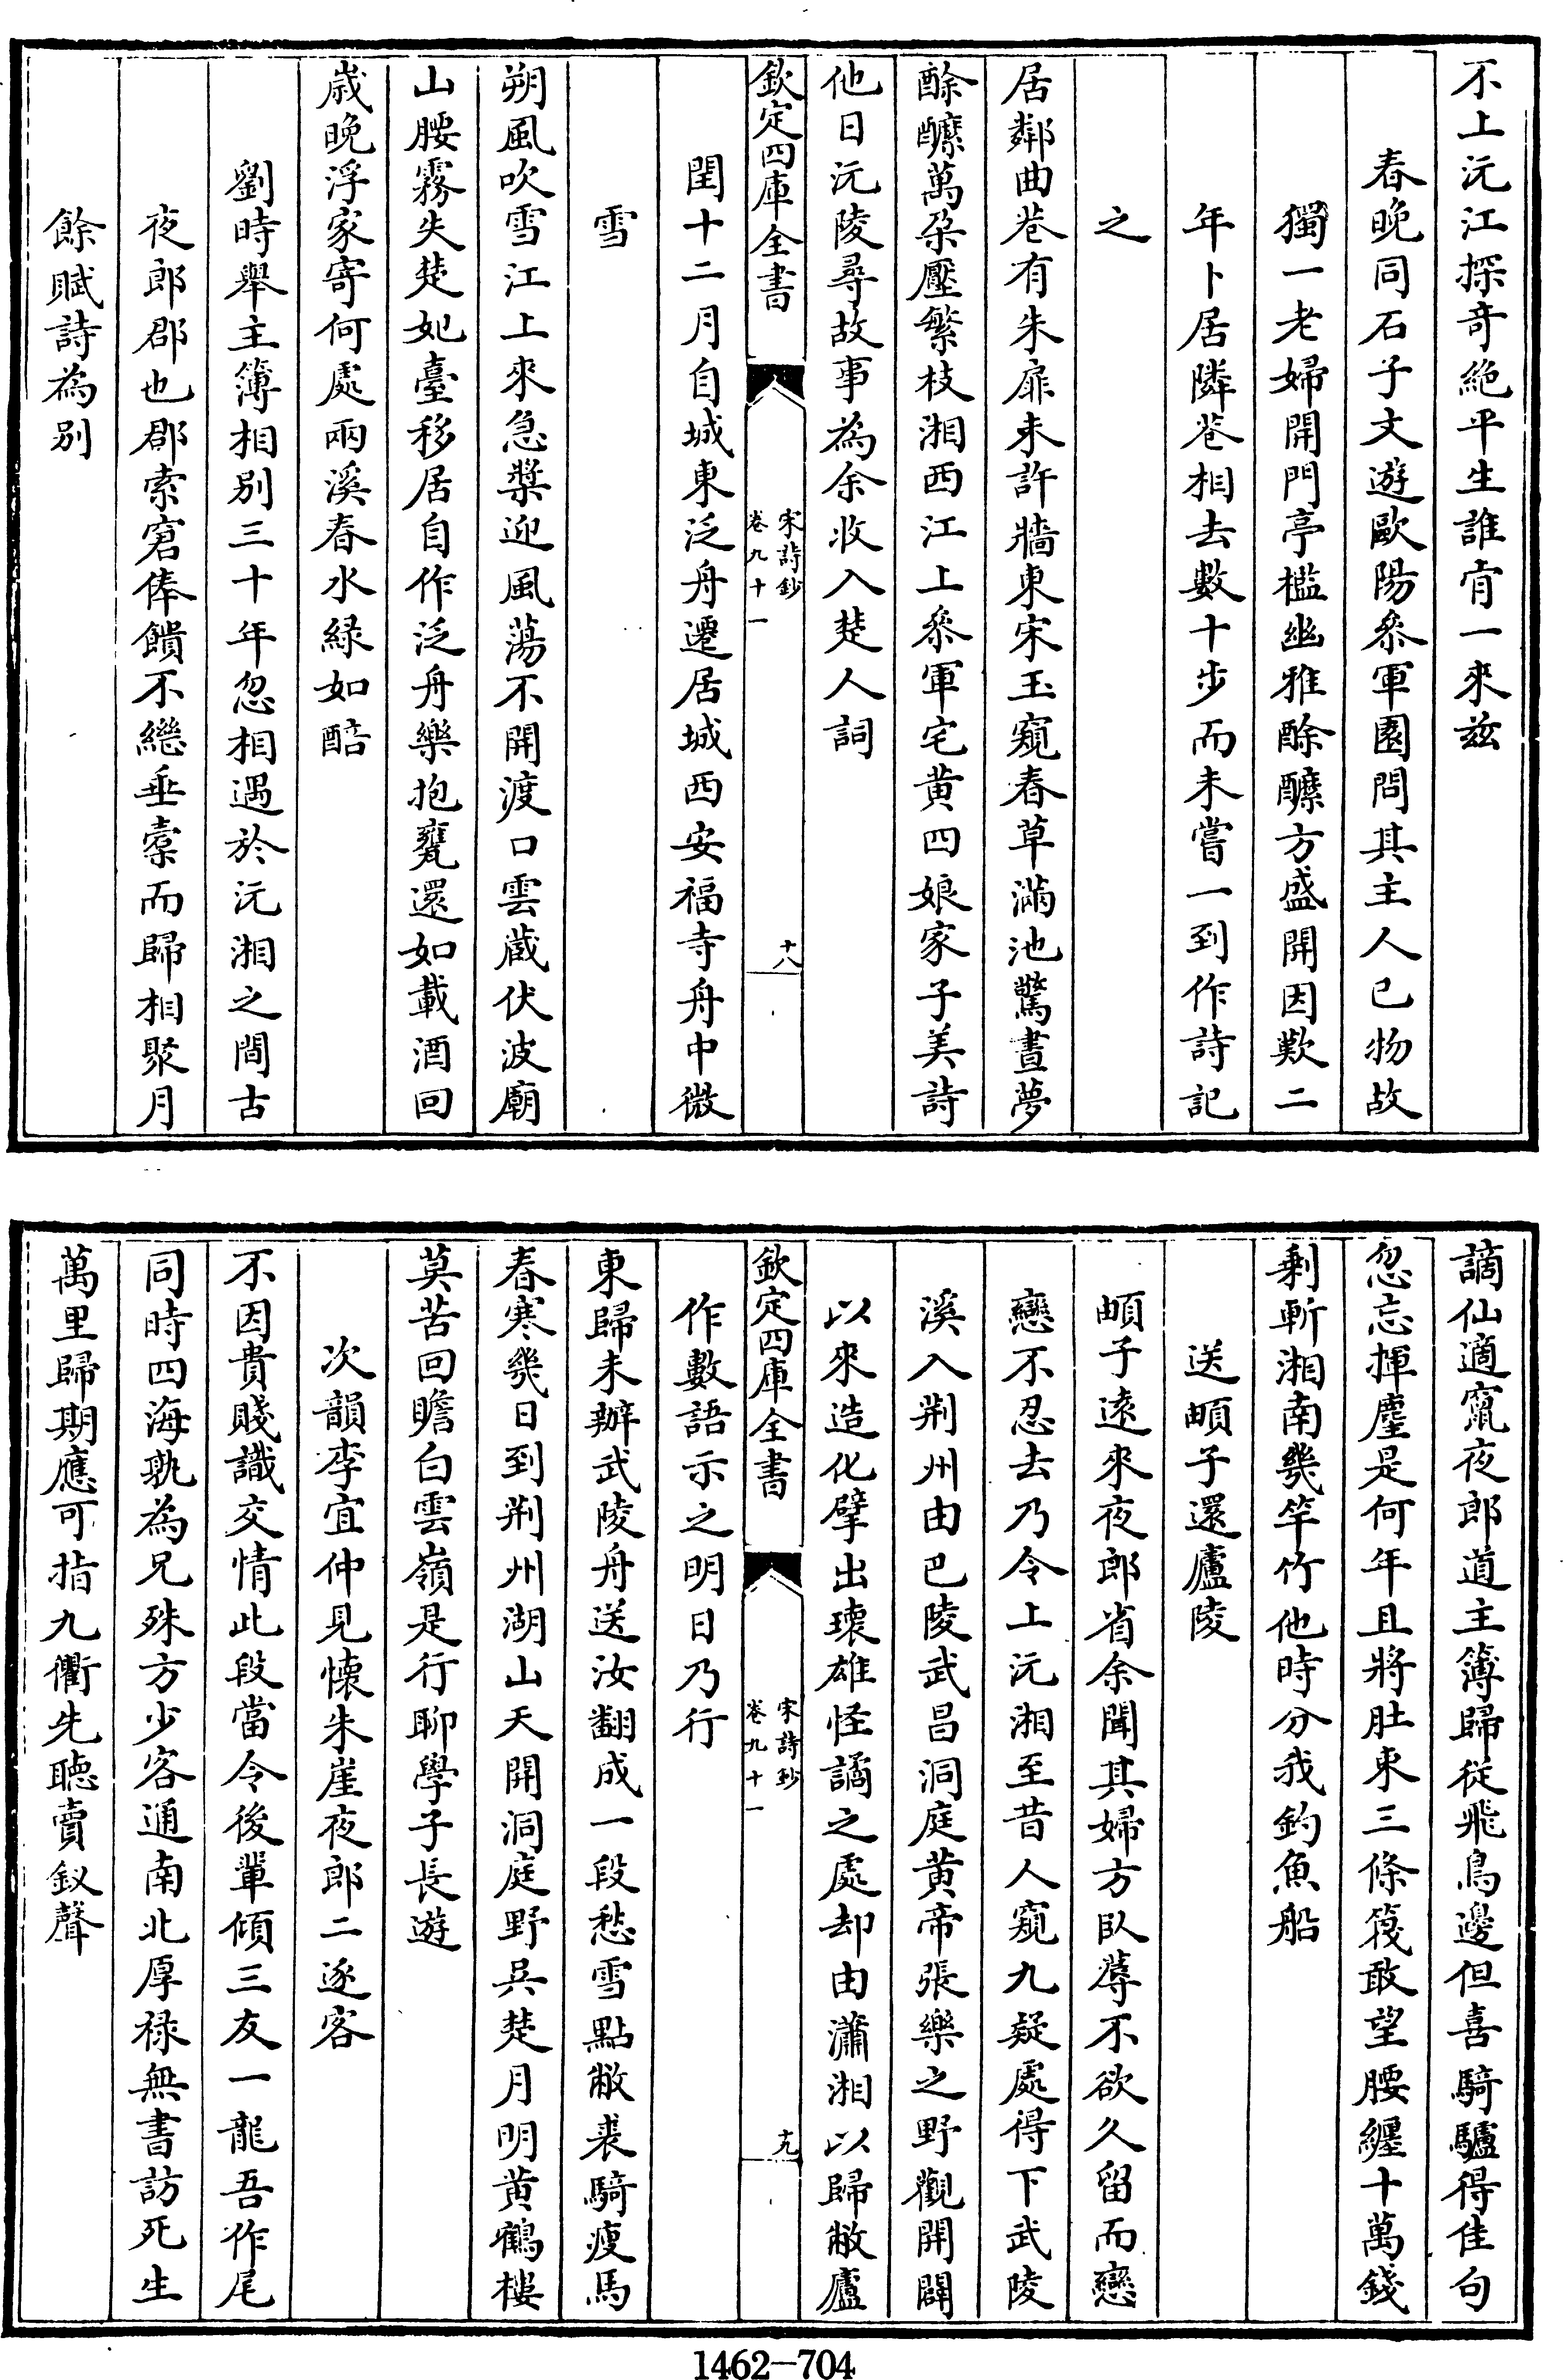 不上沅江探竒絶平生誰肯一來兹
春晚同石子文遊歐陽叅軍園問其主人已物故
獨一老婦開門亭檻幽雅酴醿方盛開因歎二
年卜居隣巷相去數十步而未嘗一到作詩記
之
居鄰曲巷有朱扉未許牆東宋玉窺春草滿池驚晝夢
酴醿萬朶壓繁枝湘西江上叅軍宅黄四娘家子美詩
他日沅陵尋故事為余收入楚人詞
欽定四庫全書
宋詩鈔
卷九十一
十八
閏十二月自城東泛舟遷居城西安福寺舟中微
雪
朔風吹雪江上來急槳迎風蕩不開渡口雲藏伏波廟
山腰霧失楚妃臺移居自作泛舟樂抱甕還如載酒回
歲晚浮家寄何處兩溪春水緑如醅
劉時舉主簿相别三十年忽相遇於沅湘之間古
夜郎郡也郡索窘俸饋不繼垂橐而歸相聚月
餘賦詩為别
謫仙適竄夜郎道主簿歸從飛鳥邊但喜騎驢得佳句
忽忘揮麈是何年且將肚束三條篾敢望腰纒十萬錢
剩斬湘南幾竿竹他時分我釣魚船
送頔子還廬陵
頔子逺來夜郎省余聞其婦方臥蓐不欲久留而戀
戀不忍去乃令上沅湘至昔人窺九疑處得下武陵
溪入荆州由巴陵武昌洞庭黄帝張樂之野觀開闢
以來造化擘出瓌雄怪譎之處却由瀟湘以歸敝廬
欽定四庫全書
宋詩鈔
卷九十一
十九
作數語示之明日乃行
東歸未辦武陵舟送汝翻成一段愁雪點敝裘騎瘦馬
春寒幾日到荆州湖山天開洞庭野吳楚月明黄鶴樓
莫苦回瞻白雲嶺是行聊學子長遊
次韻李宜仲見懐朱崖夜郎二逐客
不因貴賤識交情此段當令後輩傾三友一龍吾作尾
同時四海孰為兄殊方少客通南北厚禄無書訪死生
萬里歸期應可指九衢先聽賣釵聲
1462—704